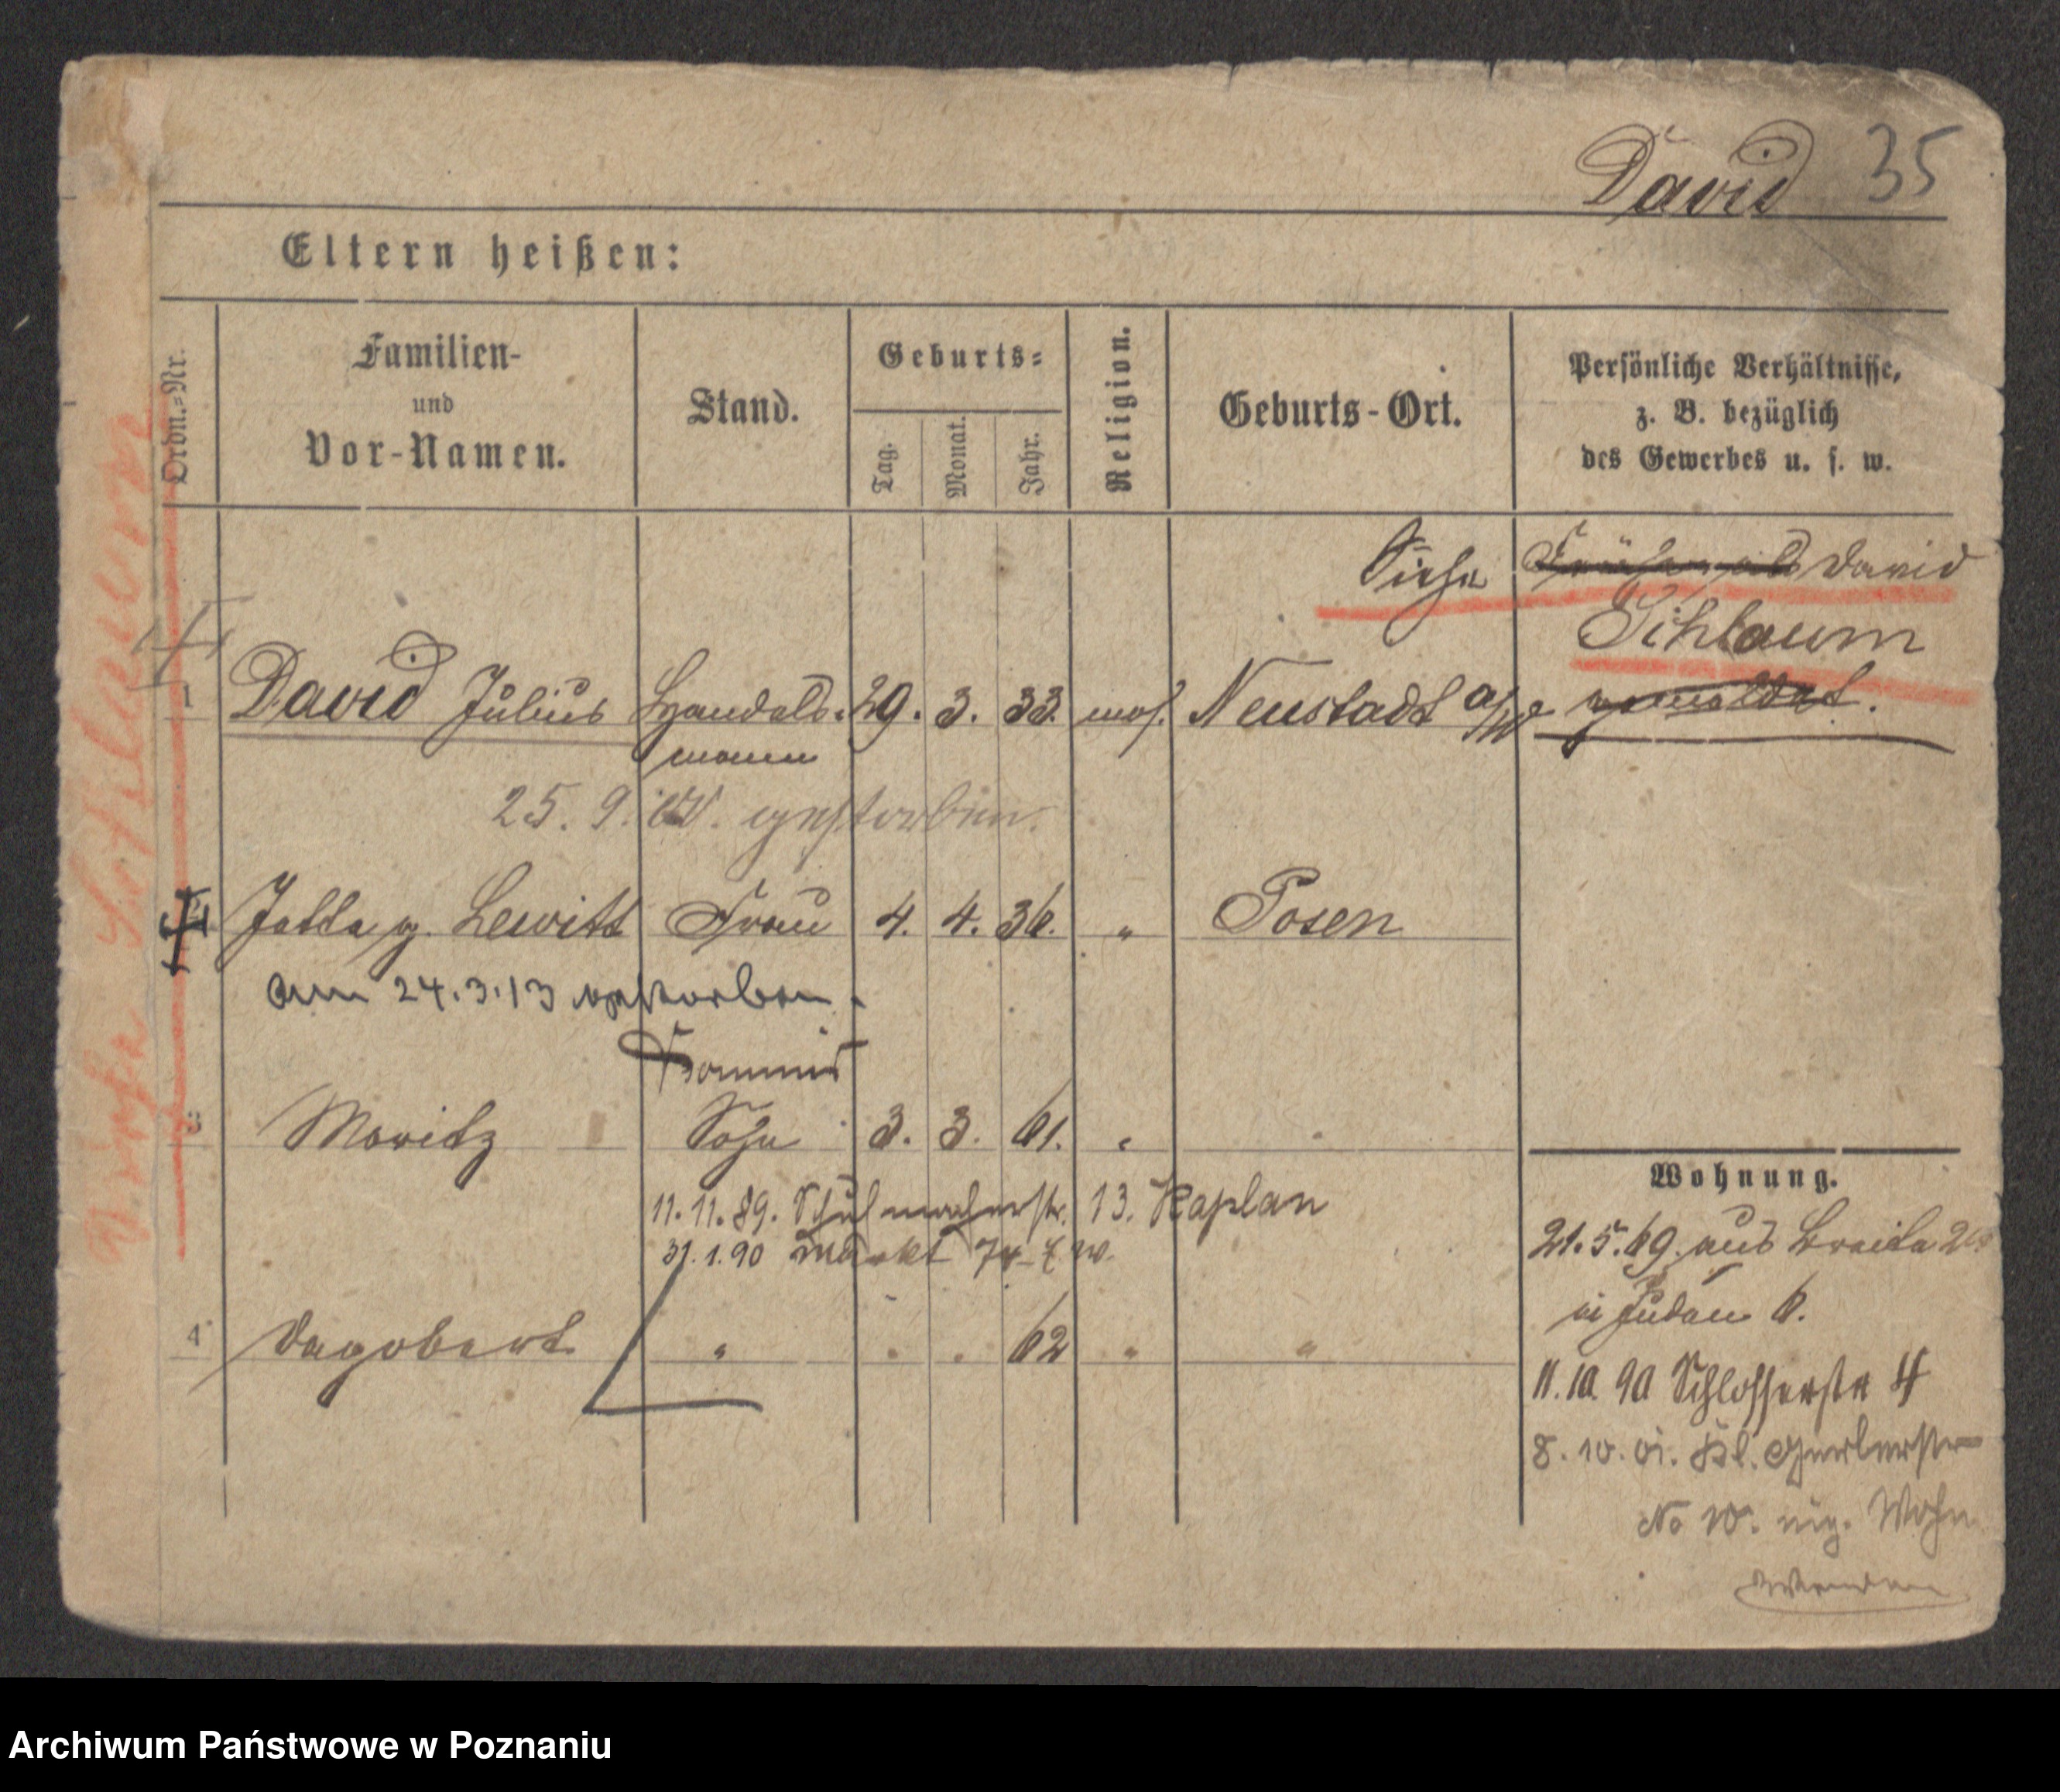 David 35
Eltern heißen:
Ordn.-Nr.
Familien-
und
Vor-Namen.
Stand.
Geburts-
Tag.
Monat.
Jahr.
Religion.
Geburts-Ort.
Persönliche Verhältnisse,
z. B. bezüglich
des Gewerbes u. s. w.
Siehe Früher als David
Schlaum
gemeldet.
1 David Julius Handels- 29. 3. 33. mos. Neustadt a/W
mann
25. 9. gestorben.
Lewitt Frau 4. 4. 36. " Posen
am 24.3.13 gestorben.
Kommis
3 Moritz Sohn 3. 3. 61. "
11. 11. 89. Schuhmacherstr. 13. Kaplan
31. 1. 90 Markt 74
4 Dagobert " 62 " "
Wohnung.
21. 5. 69. aus Breite
Juden 6.
11. 10. 90 Schlosserstr 4
8. 10. 01. Kl. Gerberstr
No 10. eig. Wohn
Wenden
Siehe Schlaum
Archiwum Państwowe w Poznaniu